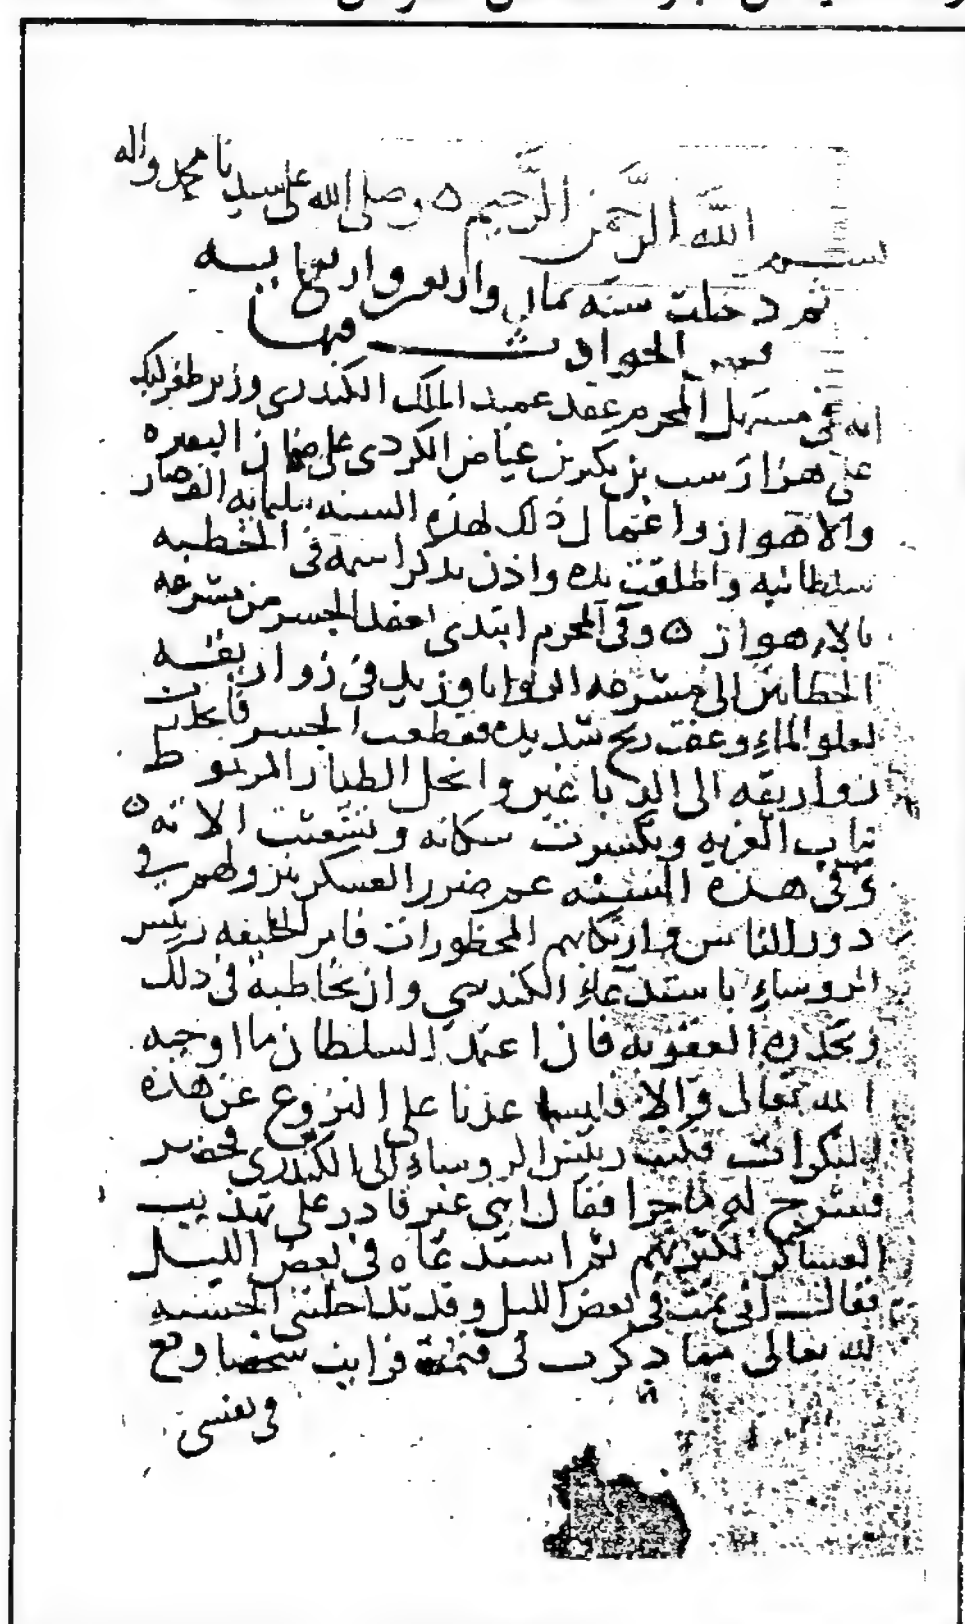 بسم الله الرحمن الرحيم ه وصلى الله على سيدنا محمد واله
ثم دخلت سنة ثمان واربعين واربعمايه
فمن الحوادث فيها
انه في مستهل المحرم عقد عميد الملك الكندري وزير طغرلبك
على هزارسب بن بنكير بن عياض الكردي على ضمان البصره
والاهواز واعمال ذلك لهذه السنه بثلثمايه الف دينار
سلطانيه واطلقت يده واذن بذكر اسمه في الخطبه
بالاهواز ه وفي المحرم ابتدي بعقد الجسر من مشرعه
الحطابين الى مشرعه الروايا وزيد في زواريقه
لعلو الماء وعصفت ريح شديده فقطعت الجسر فانحدرت
زواريقه الى الدباغين وانحل الطيار المربوط
بباب الغربه وتكسرت سكانه وتشعثت الاته ه
وفي هذه السنه عم ضرر العسكر بنزولهم في
دور الناس وارتكابهم المحظورات فامر الخليفه رييس
الروساء باستدعاء الكندري وان يخاطبه في ذلك
ويحذره العقوبه فان اعتمد السلطان ما اوجبه
الله تعالى والا فليساعدنا على النزوح عن هذه
المنكرات فكتب رييس الروساء الى الكندري فحضر
فشرح له ما جرا فقال اني غير قادر على تهذيب
العساكر لكثرتهم ثم استدعاه في بعض الليل
فقال اني نمت في بعض الليل وقد تداخلني الخشيه
لله تعالى مما ذكرت لي فنمت فرايت شخصا وقع
في نفسي